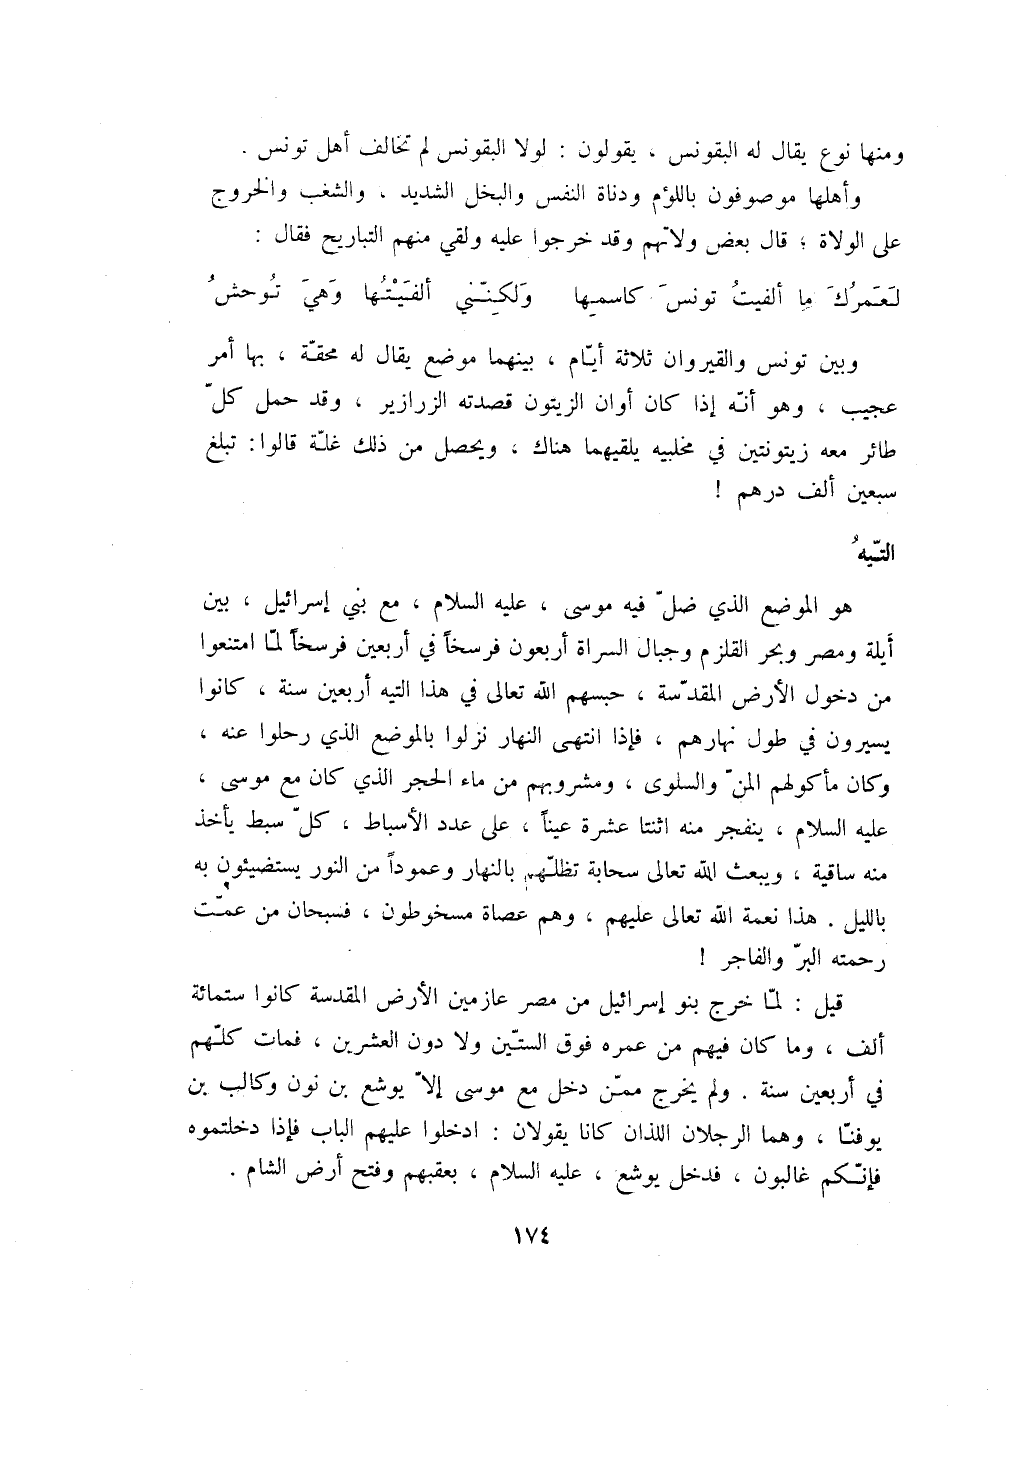 ومنها نوع يقال له البقونس ، يقولون : لولا البقونس لم تخالف أهل تونس .
وأهلها موصوفون باللؤم ودناة النفس والبخل الشديد ، والشغب والخروج
على الولاة ؛ قال بعض ولاتهم وقد خرجوا عليه ولقي منهم التباريح فقال :
لَعَمرُكَ ما ألفيتُ تونسَ كاسمِها ولَكنّني ألفَيْتُها وَهيَ تُوحشُ
وبين تونس والقيروان ثلاثة أيّام ، بينهما موضع يقال له محقّة ، بها أمر
عجيب ، وهو أنّه إذا كان أوان الزيتون قصدته الزرازير ، وقد حمل كلّ
طائر معه زيتونتين في مخلبيه يلقيهما هناك ، ويحصل من ذلك غلّة قالوا: تبلغ
سبعين ألف درهم !
التّيهُ
هو الموضع الذي ضلّ فيه موسى ، عليه السلام ، مع بني إسرائيل ، بين
أيلة ومصر وبحر القلزم وجبال السراة أربعون فرسخاً في أربعين فرسخاً لمّا امتنعوا
من دخول الأرض المقدّسة ، حبسهم الله تعالى في هذا التيه أربعين سنة ، كانوا
يسيرون في طول نهارهم ، فإذا انتهى النهار نزلوا بالموضع الذي رحلوا عنه ،
وكان مأكولهم المنّ والسلوى ، ومشروبهم من ماء الحجر الذي كان مع موسى ،
عليه السلام ، ينفجر منه اثنتا عشرة عيناً ، على عدد الأسباط ، كلّ سبط يأخذ
منه ساقية ، ويبعث الله تعالى سحابة تظلّهم بالنهار وعموداً من النور يستضيئون به
بالليل . هذا نعمة الله تعالى عليهم ، وهم عصاة مسخوطون ، فسبحان من عمّت
رحمته البرّ والفاجر !
قيل : لمّا خرج بنو إسرائيل من مصر عازمين الأرض المقدسة كانوا ستمائة
ألف ، وما كان فيهم من عمره فوق الستّين ولا دون العشرين ، فمات كلّهم
في أربعين سنة . ولم يخرج ممّن دخل مع موسى إلاّ يوشع بن نون وكالب بن
يوفنّا ، وهما الرجلان اللذان كانا يقولان : ادخلوا عليهم الباب فإذا دخلتموه
فإنّكم غالبون ، فدخل يوشع ، عليه السلام ، بعقبهم وفتح أرض الشام .
١٧٤